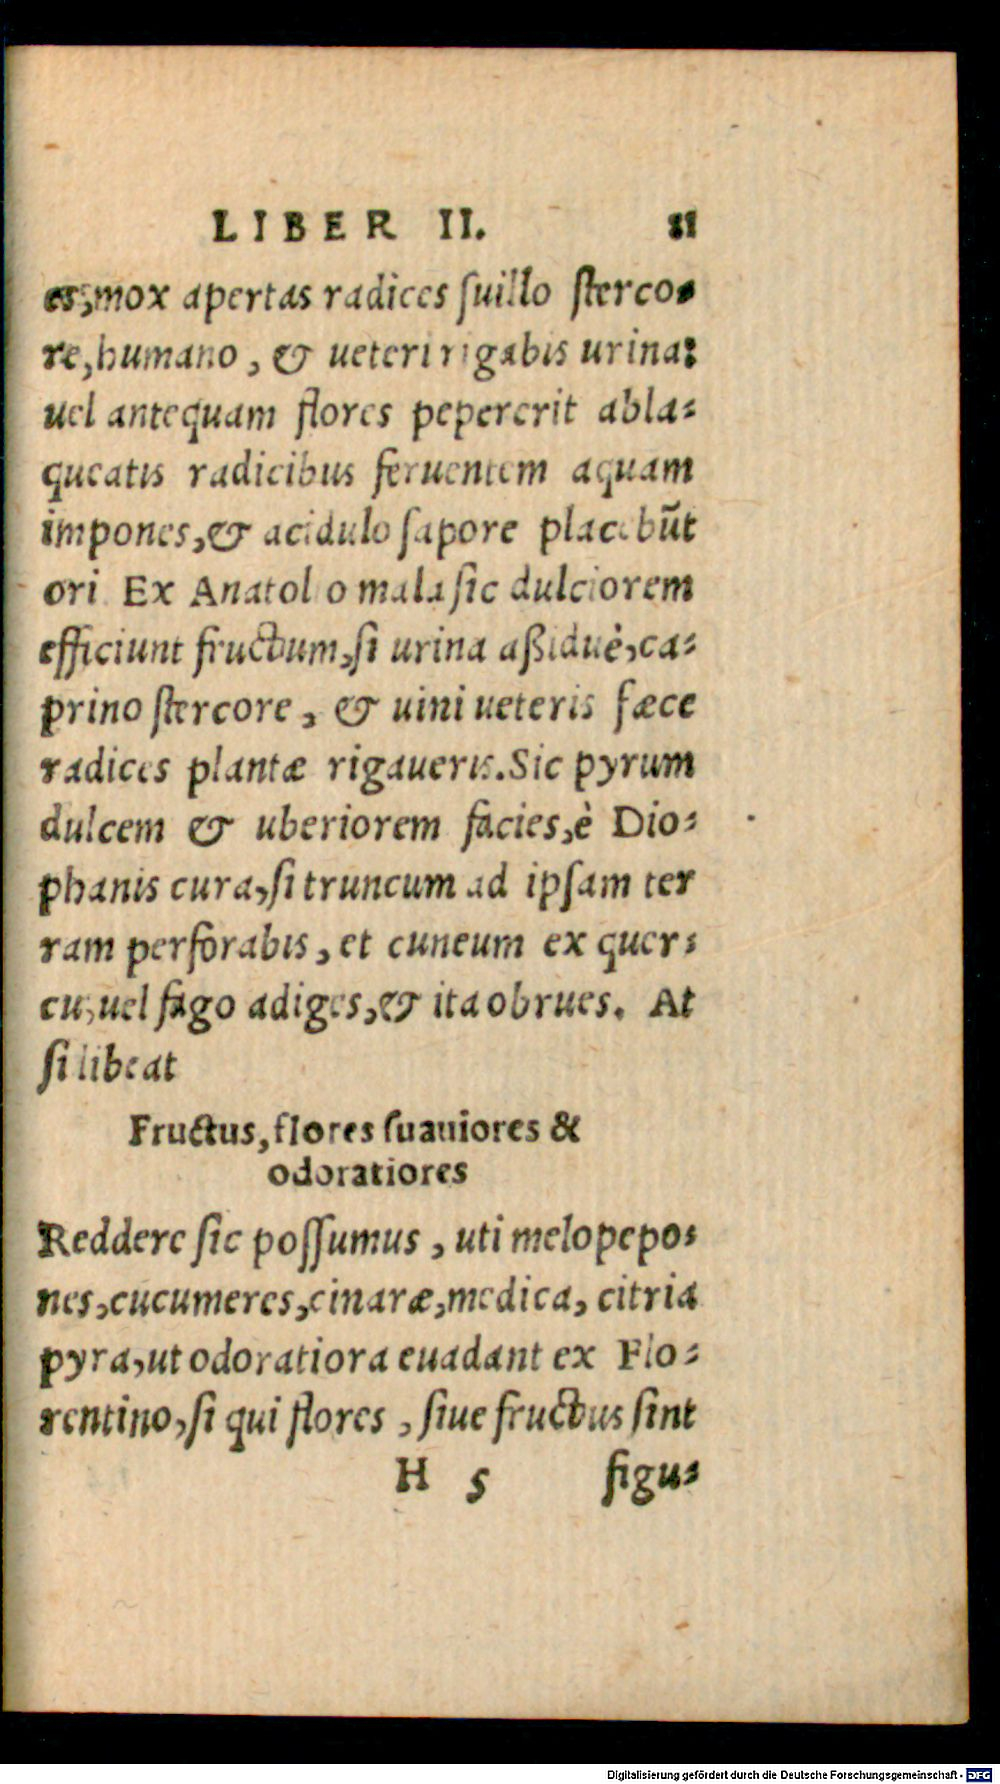 LIBER II. 81
es, mox apertas radices ſuillo ſterco⸗
re, humano, & ueteri rigabis urina:
uel antequam flores pepererit abla⸗
queatis radicibus feruentem aquam
impones, & acidulo ſapore placebūt
ori Ex Anatolio mala ſic dulciorem
efficiunt fructum, ſi urina aßiduè, ca⸗
prino ſtercore, & uini ueteris fæce
radices plantæ rigaueris. Sic pyrum
dulcem & uberiorem facies, è Dio⸗
phanis cura, ſi truncum ad ipſam ter
ram perforabis, et cuneum ex quer⸗
cu, uel fago adiges, & ita obrues. At
ſi libeat
Fructus, flores ſuauiores &
odoratiores
Reddere ſic poſſumus, uti melopepo⸗
nes, cucumeres, cinaræ, medica, citria
pyra, ut odoratiora euadant ex Flo⸗
rentino, ſi qui flores, ſiue fructus ſint
H 5 figu⸗
Digitalisierung gefördert durch die Deutsche Forschungsgemeinschaft - DFG